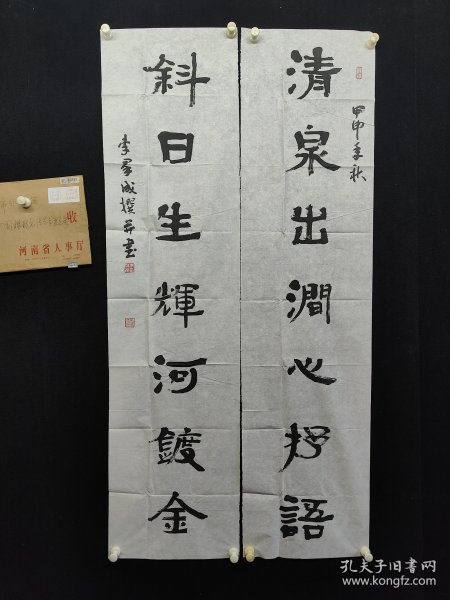 清泉出澗心抒語
甲申季秋
斜日生輝河鍍金
李景成撰并書
收
河南省人事厅
孔夫子旧书网
www.kongfz.com